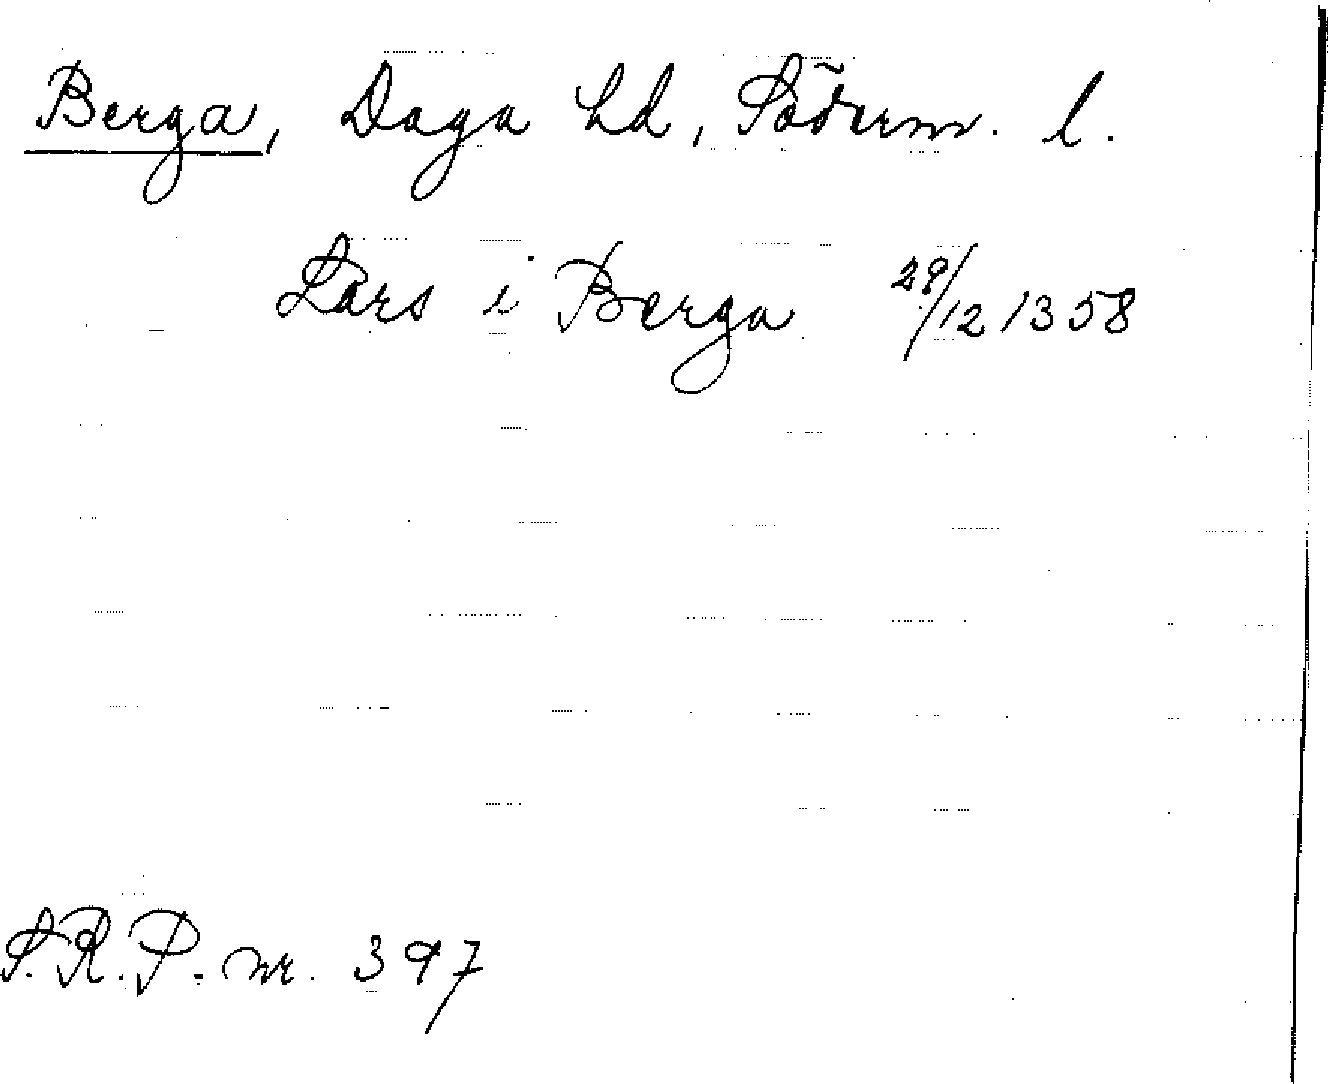 Berga, Daga hd, Söderm. l.
Lars i Berga 29/12 1358
S.R.P. nr. 397